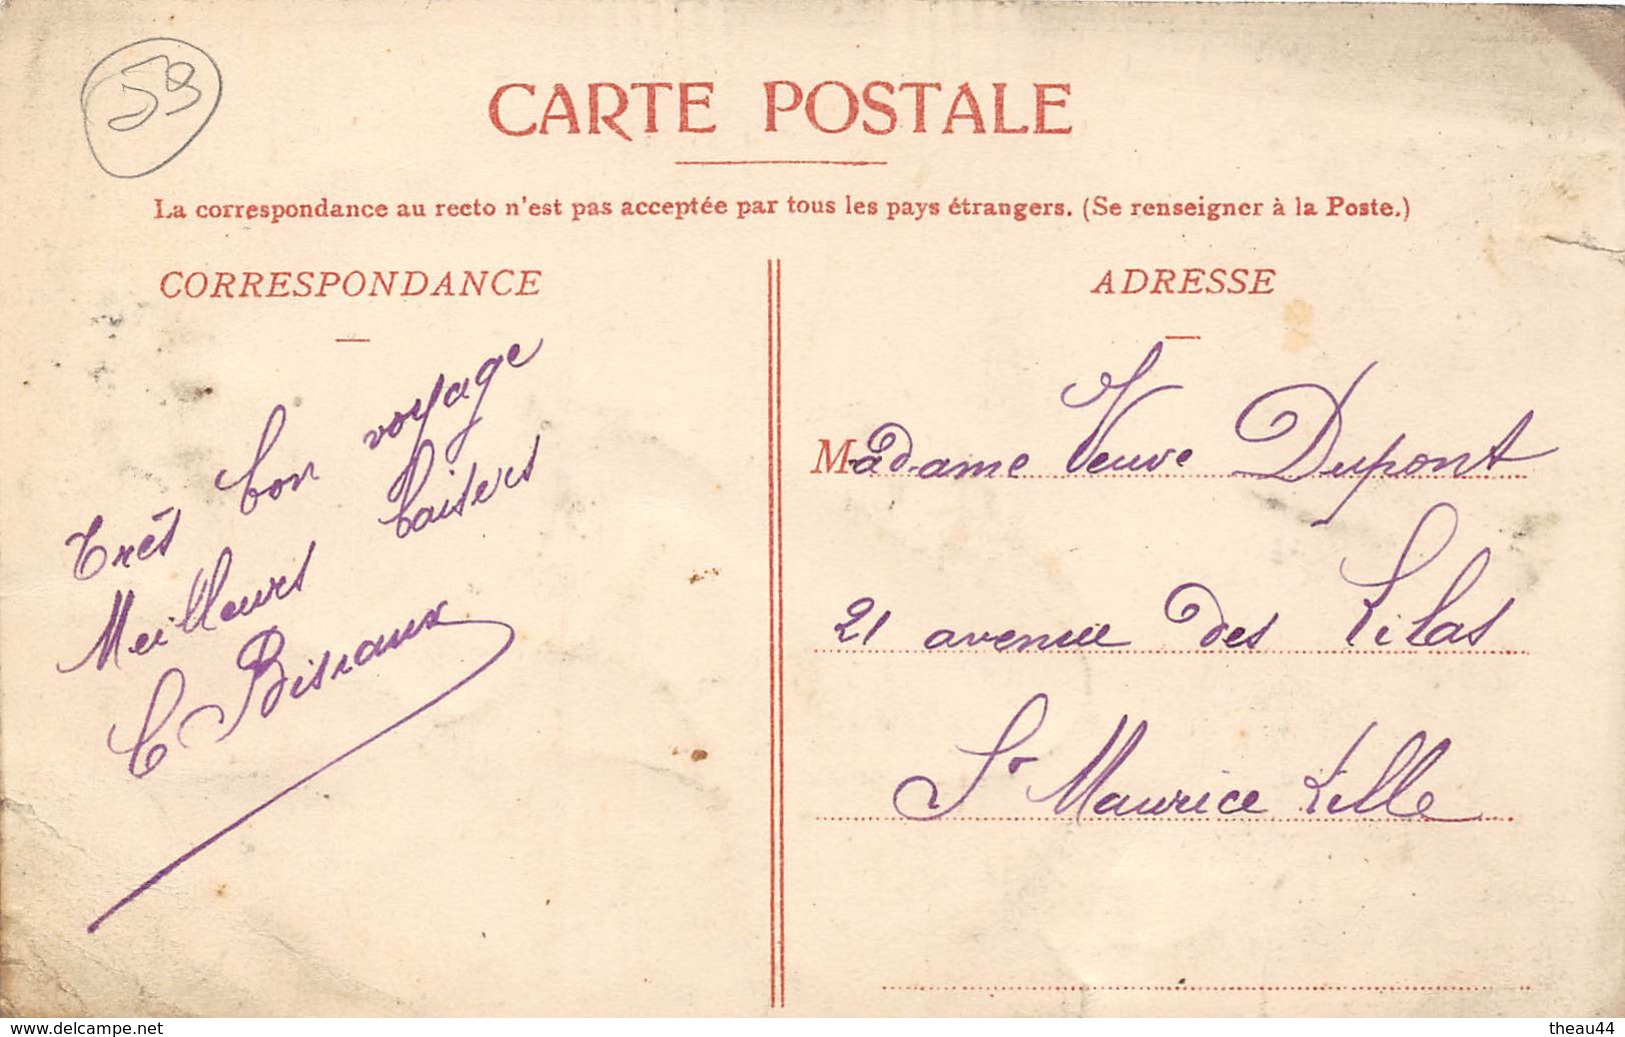 59
CARTE POSTALE
La correspondance au recto n'est pas acceptée par tous les pays étrangers. (Se renseigner à la Poste.)
CORRESPONDANCE
Très bon voyage
Meilleurs baisers
C Bisiaux
ADRESSE
Madame Veuve Dupont
21 avenue des Lilas
St Maurice Lille
www.delcampe.net
theau44